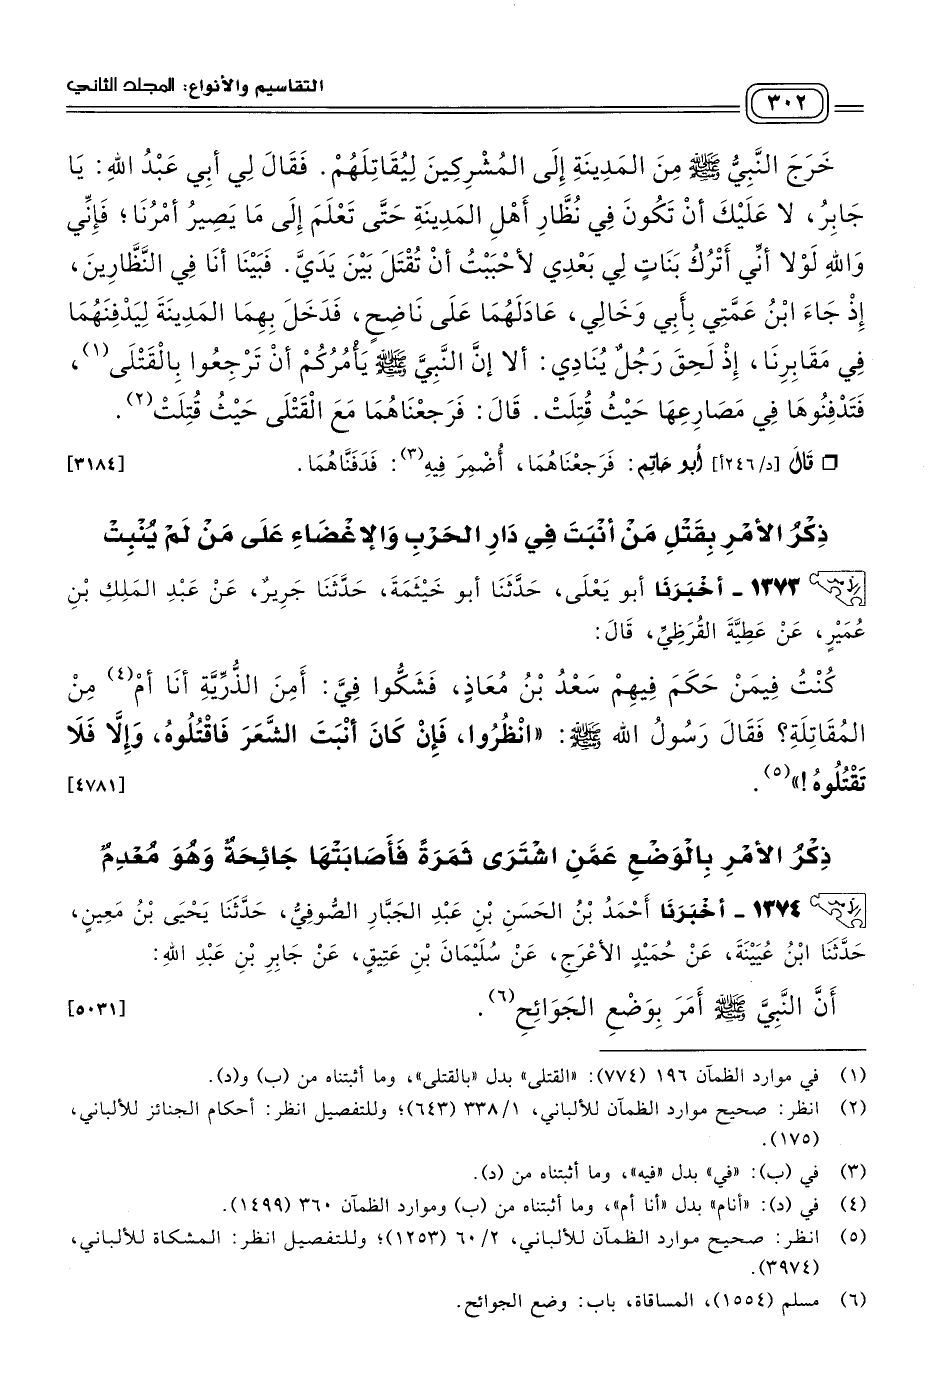 التقاسيم والأنواع: المجلد الثاني
٣٠٢
خَرَجَ النَّبِيُّ ﷺ مِنَ المَدِينَةِ إِلَى المُشْرِكِينَ لِيُقَاتِلَهُمْ. فَقَالَ لِي أبي عَبْدُ اللهِ: يَا
جَابِرُ، لا عَلَيْكَ أنْ تَكُونَ فِي نُظَّارِ أهْلِ المَدِينَةِ حَتَّى تَعْلَمَ إلَى مَا يَصِيرُ أمْرُنَا؛ فَإنِّي
وَاللهِ لَوْلا أنِّي أتْرُكُ بَنَاتٍ لِي بَعْدِي لأحْبَبْتُ أنْ تُقْتَلَ بَيْنَ يَدَيَّ. فَبَيْنَا أنَا فِي النَّظَّارِينَ،
إذْ جَاءَ ابْنُ عَمَّتِي بِأبي وَخَالِي، عَادَلَهُمَا عَلَى نَاضِحٍ، فَدَخَلَ بِهِمَا المَدِينَةَ لِيَدْفِنَهُمَا
فِي مَقَابِرِنَا، إذْ لَحِقَ رَجُلٌ يُنَادِي: ألا إنَّ النَّبِيَّ ﷺ يَأْمُرُكُمْ أنْ تَرْجِعُوا بِالْقَتْلَى(١)،
فَتَدْفِنُوهَا فِي مَصَارِعِهَا حَيْثُ قُتِلَتْ. قَالَ: فَرَجَعْنَاهُمَا مَعَ القَتْلَى حَيْثُ قُتِلَتْ(٢).
□ قَالَ [د/٢٤٦أ] أبُو حَاتِم: فَرَجَعْنَاهُمَا، أُضْمِرَ فِيهِ(٣): فَدَفَنَّاهُمَا. [٣١٨٤]
ذِكْرُ الأمْرِ بِقَتْلِ مَنْ أنْبَتَ فِي دَارِ الحَرْبِ وَالإغْضَاءِ عَلَى مَنْ لَمْ يُنْبِتْ
١٣٧٣ - أخْبَرَنَا أبو يَعْلَى، حَدَّثَنَا أبو خَيْثَمَةَ، حَدَّثَنَا جَرِيرٌ، عَنْ عَبْدِ المَلِكِ بْنِ
عُمَيْرٍ، عَنْ عَطِيَّةَ القُرَظِيِّ، قَالَ:
كُنْتُ فِيمَنْ حَكَمَ فِيهِمْ سَعْدُ بْنُ مُعَاذٍ، فَشَكُّوا فِيَّ: أَمِنَ الذُّرِّيَّةِ أنَا أمْ(٤) مِنْ
المُقَاتِلَةِ؟ فَقَالَ رَسُولُ الله ﷺ: «انْظُرُوا، فَإنْ كَانَ أنْبَتَ الشَّعَرَ فَاقْتُلُوهُ، وَإلَّا فَلَا
تَقْتُلُوهُ!»(٥). [٤٧٨١]
ذِكْرُ الأمْرِ بِالْوَضْعِ عَمَّنِ اشْتَرَى ثَمَرَةً فَأَصَابَتْهَا جَائِحَةٌ وَهُوَ مُعْدِمٌ
١٣٧٤ - أخْبَرَنَا أَحْمَدُ بْنُ الحَسَنِ بْنِ عَبْدِ الجَبَّارِ الصُّوفِيُّ، حَدَّثَنَا يَحْيَى بْنُ مَعِينٍ،
حَدَّثَنَا ابْنُ عُيَيْنَةَ، عَنْ حُمَيْدٍ الأعْرَجِ، عَنْ سُلَيْمَانَ بْنِ عَتِيقٍ، عَنْ جَابِرِ بْنِ عَبْدِ اللهِ:
أَنَّ النَّبِيَّ ﷺ أَمَرَ بِوَضْعِ الجَوَائِحِ(٦). [٥٠٣١]
(١) في موارد الظمآن ١٩٦ (٧٧٤): «القتلى» بدل «بالقتلى»، وما أثبتناه من (ب) و(د).
(٢) انظر: صحيح موارد الظمآن للألباني، ٣٣٨/١ (٦٤٣)؛ وللتفصيل انظر: أحكام الجنائز للألباني،
(١٧٥).
(٣) في (ب): «في» بدل «فيه»، وما أثبتناه من (د).
(٤) في (د): «أنام» بدل «أنا أم»، وما أثبتناه من (ب) وموارد الظمآن ٣٦٠ (١٤٩٩).
(٥) انظر: صحيح موارد الظمآن للألباني، ٦٠/٢ (١٢٥٣)؛ وللتفصيل انظر: المشكاة للألباني،
(٣٩٧٤).
(٦) مسلم (١٥٥٤)، المساقاة، باب: وضع الجوائح.